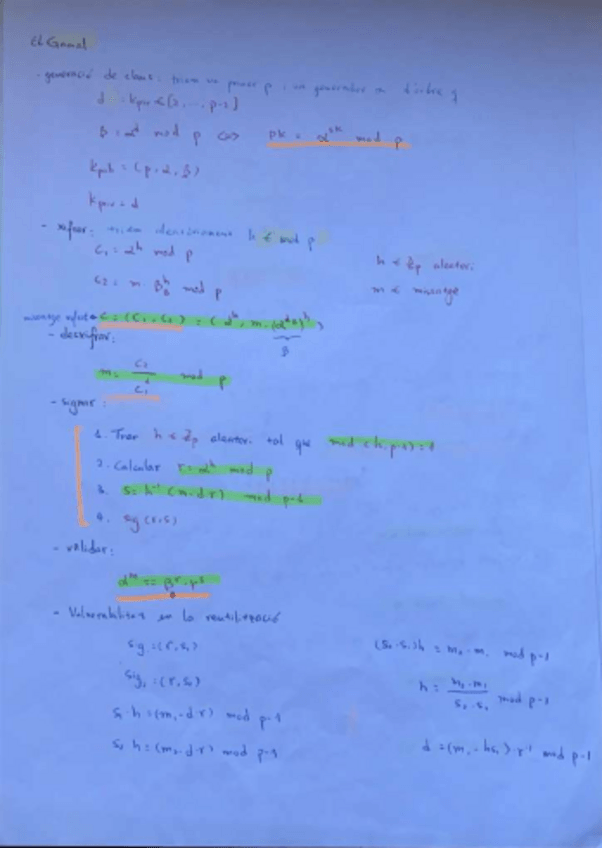 El Gamal
- generació de claus: triem un primer p i un generador α d'ordre q
d = kpriv ∈ {2, ..., p-2}
β = α^d mod p <=> PK = α^SK mod p
kpub = (p, α, β)
kpriv = d
- xifrar: triem aleatòriament h ∈ mod p
c1 = α^h mod p
h ∈ Zp aleatori
c2 = m β^h mod p
m ∈ missatge
missatge xifrat → c = (c1, c2) = (α^h, m·(α^d)^h)
β
- desxifrar:
m = c2 / c1^d mod p
- signar:
1. Triar h ∈ Zp aleatori tal que mcd (h, p-1) = 1
2. Calcular r = α^h mod p
3. s = h^-1 (m - d r) mod p-1
4. sg (r, s)
- validar:
α^m == β^r · r^s
- Vulnerabilitat en la reutilització
sig1 = (r, s1)
(s2 - s1) h = m2 - m1 mod p-1
sig2 = (r, s2)
h = m2 - m1 / s2 - s1 mod p-1
s1 h = (m1 - d r) mod p-1
s2 h = (m2 - d r) mod p-1
d = (m1 - h s1) r^-1 mod p-1